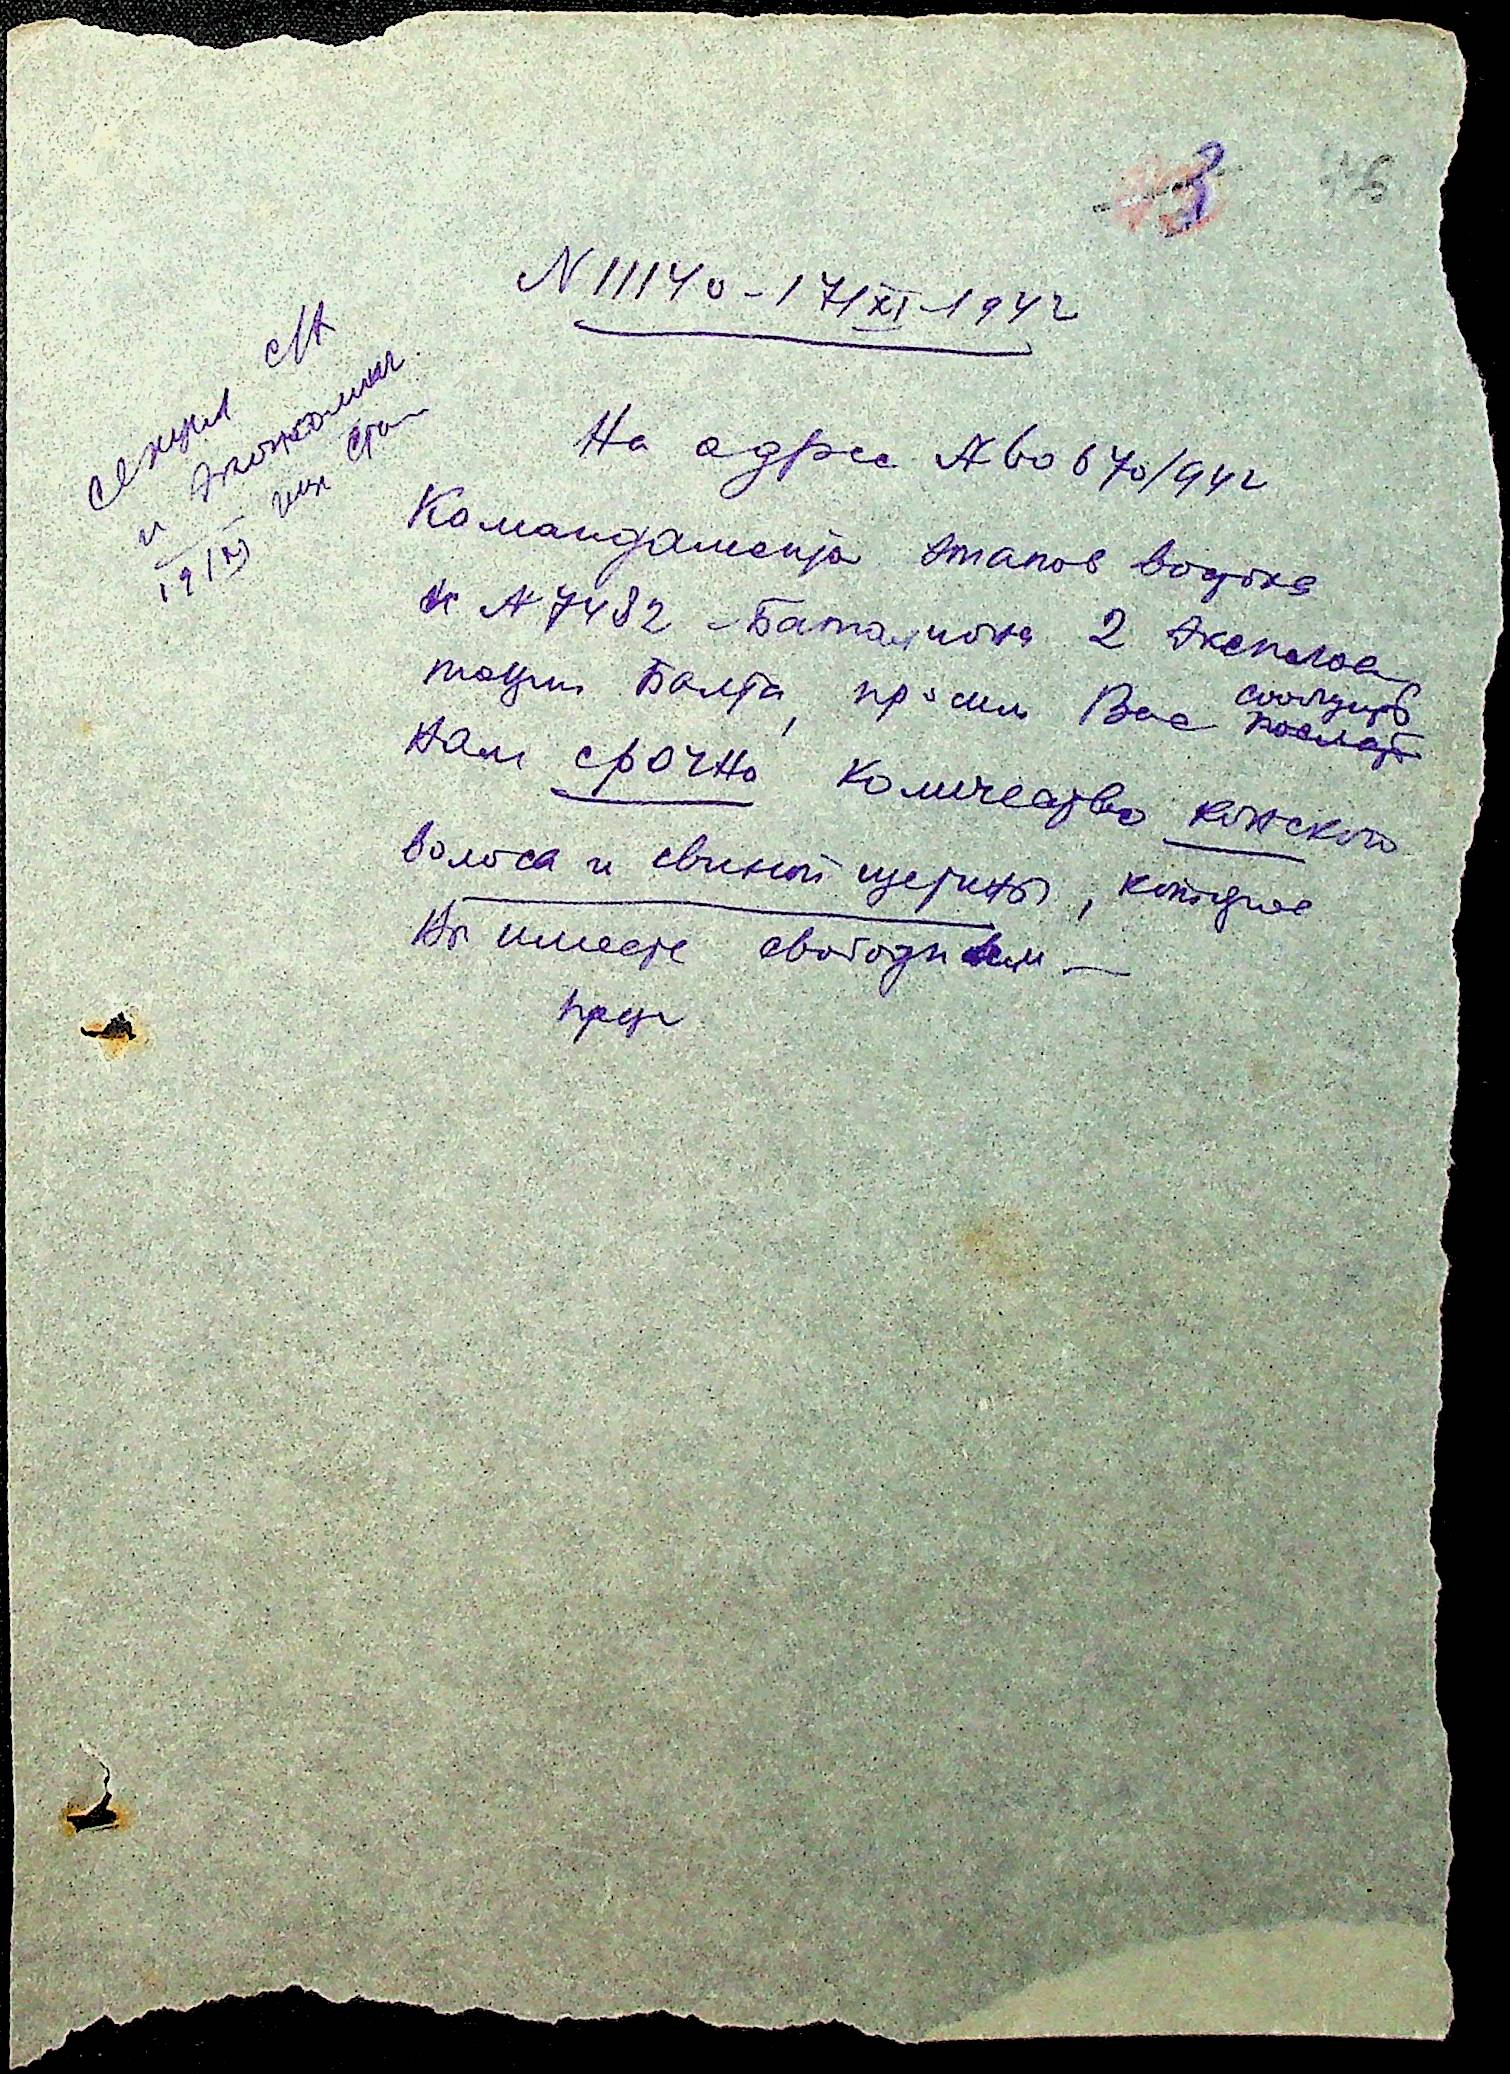 3
N 11140 - 17/XI - 1942
секция СМ
и экономич
19/XI
На адрес № 670/942
Командамента этапов востока
и № 7482 - Баталиона 2 эксплоа
тации Балта, просим Вас сообщить
послать
нам срочно количество конского
волоса и свиной щетины, которое
Вы имеете свободным —